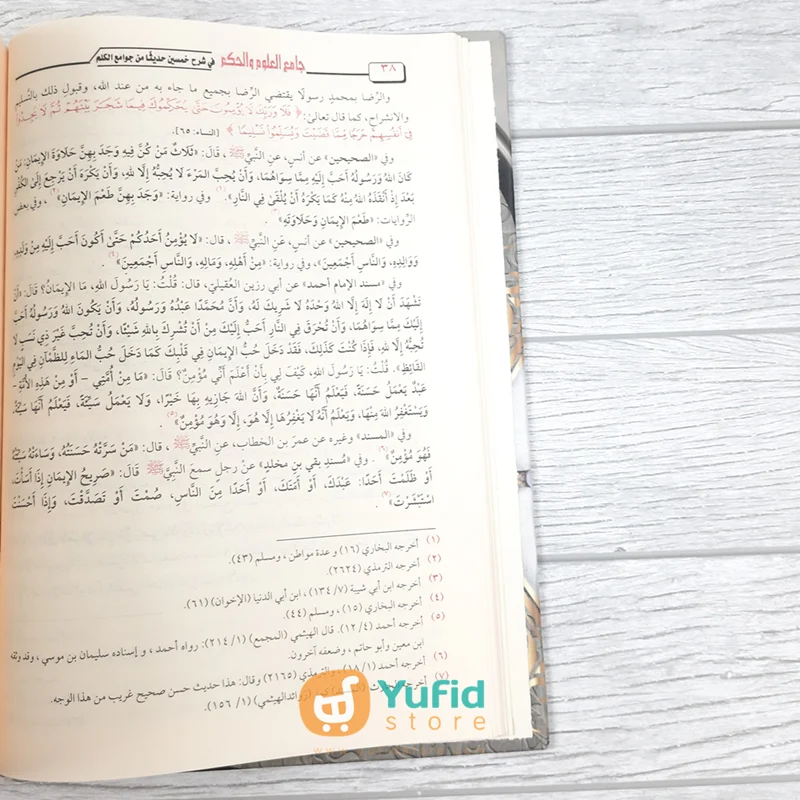 ٣٨
جامع العلوم والحكم في شرح خمسين حديثًا من جوامع الكلم
والرِّضا بمحمدٍ رسولًا يقتضي الرِّضا بجميع ما جاء به من عند الله، وقبول ذلك بالتَّسليم
والانشراح، كما قال تعالى: ﴿ فَلَا وَرَبِّكَ لَا يُؤْمِنُونَ حَتَّىٰ يُحَكِّمُوكَ فِيمَا شَجَرَ بَيْنَهُمْ ثُمَّ لَا يَجِدُوا
فِي أَنفُسِهِمْ حَرَجًا مِّمَّا قَضَيْتَ وَيُسَلِّمُوا تَسْلِيمًا ﴾ [النساء: ٦٥].
وفي «الصحيحين» عن أنس، عنِ النَّبيِّ ﷺ، قَالَ: «ثَلَاثٌ مَنْ كُنَّ فِيهِ وَجَدَ بِهِنَّ حَلَاوَةَ الإِيمَانِ: مَنْ
كَانَ اللهُ وَرَسُولُهُ أَحَبَّ إِلَيْهِ مِمَّا سِوَاهُمَا، وَأَنْ يُحِبَّ المَرْءَ لَا يُحِبُّهُ إِلَّا لِلهِ، وَأَنْ يَكْرَهَ أَنْ يَرْجِعَ إِلَى الكُفْرِ
بَعْدَ إِذْ أَنْقَذَهُ اللهُ مِنْهُ كَمَا يَكْرَهُ أَنْ يُلْقَى فِي النَّارِ»(١). وفي رواية: «وَجَدَ بِهِنَّ طَعْمَ الإِيمَانِ»(٢)، وفي بعض
الرِّوايات: «طَعْمَ الإِيمَانِ وَحَلَاوَتَهِ»(٣).
وفي «الصحيحين» عن أنس، عَنِ النَّبيِّ ﷺ، قال: «لَا يُؤْمِنُ أَحَدُكُمْ حَتَّى أَكُونَ أَحَبَّ إِلَيْهِ مِنْ وَلَدِهِ،
وَوَالِدِهِ، وَالنَّاسِ أَجْمَعِينَ»، وفي رواية: «مِنْ أَهْلِهِ، وَمَالِهِ، وَالنَّاسِ أَجْمَعِينَ»(٤).
وفي «مسند الإمام أحمد» عن أبي رزين العقيلي، قال: قُلْتُ: يَا رَسُولَ اللهِ، مَا الإِيمَانُ؟ قَالَ: «أَنْ
تَشْهَدَ أَنْ لَا إِلَهَ إِلَّا اللهُ وَحْدَهُ لَا شَرِيكَ لَهُ، وَأَنَّ مُحَمَّدًا عَبْدُهُ وَرَسُولُهُ، وَأَنْ يَكُونَ اللهُ وَرَسُولُهُ أَحَبَّ
إِلَيْكَ مِمَّا سِوَاهُمَا، وَأَنْ تُحْرَقَ فِي النَّارِ أَحَبُّ إِلَيْكَ مِنْ أَنْ تُشْرِكَ بِاللهِ شَيْئًا، وَأَنْ تُحِبَّ غَيْرَ ذِي نَسَبٍ لَا
تُحِبُّهُ إِلَّا لِلهِ، فَإِذَا كُنْتَ كَذَلِكَ، فَقَدْ دَخَلَ حُبُّ الإِيمَانِ فِي قَلْبِكَ كَمَا دَخَلَ حُبُّ المَاءِ لِلظَّمْآنِ فِي اليَوْمِ
القَائِظِ». قُلْتُ: يَا رَسُولَ اللهِ، كَيْفَ لِي بِأَنْ أَعْلَمَ أَنِّي مُؤْمِنٌ؟ قَالَ: «مَا مِنْ أُمَّتِي – أَوْ مِنْ هَذِهِ الأُمَّةِ–
عَبْدٌ يَعْمَلُ حَسَنَةً، فَيَعْلَمُ أَنَّهَا حَسَنَةٌ، وَأَنَّ اللهَ جَازِيهِ بِهَا خَيْرًا، وَلَا يَعْمَلُ سَيِّئَةً، فَيَعْلَمُ أَنَّهَا سَيِّئَةٌ،
وَيَسْتَغْفِرُ اللهَ مِنْهَا، وَيَعْلَمُ أَنَّهُ لَا يَغْفِرُهَا إِلَّا هُوَ، إِلَّا وَهُوَ مُؤْمِنٌ»(٥).
وفي «المسند» وغيره عن عمرَ بن الخطاب، عن النَّبيِّ ﷺ، قال: «مَنْ سَرَّتْهُ حَسَنَتُهُ، وَسَاءَتْهُ سَيِّئَتُهُ
فَهُوَ مُؤْمِنٌ»(٦). وفي «مُسندِ بقي بنِ مخلدٍ» عنْ رجلٍ سمعَ النَّبيَّ ﷺ قَالَ: «صَرِيحُ الإِيمَانِ إِذَا أَسَأْتَ،
أَوْ ظَلَمْتَ أَحَدًا: عَبْدَكَ، أَوْ أَمَتَكَ، أَوْ أَحَدًا مِنَ النَّاسِ، صُمْتَ أَوْ تَصَدَّقْتَ، وَإِذَا أَحْسَنْتَ
اسْتَبْشَرْتَ»(٧).
(١) أخرجه البخاري (١٦) و عدة مواطن ، ومسلم (٤٣).
(٢) أخرجه الترمذي (٢٦٢٤).
(٣) أخرجه ابن أبي شيبة (٧/ ١٣٤) ، ابن أبي الدنيا (الإخوان) (٦١).
(٤) أخرجه البخاري (١٥) ، ومسلم (٤٤).
(٥) أخرجه أحمد (٤/ ١٢). قال الهيثمي (المجمع) (١/ ٢١٤): رواه أحمد ، و إسناده سليمان بن موسي ، وقد وثقه
ابن معين وأبو حاتم ، وضعفه آخرون.
(٦) أخرجه أحمد (١/ ١٨) ، والترمذي (٢١٦٥) وقال: هذا حديث حسن صحيح غريب من هذا الوجه.
(٧) أخرجه (زوائد الهيثمي) (١/ ١٥٦).
Yufid
store